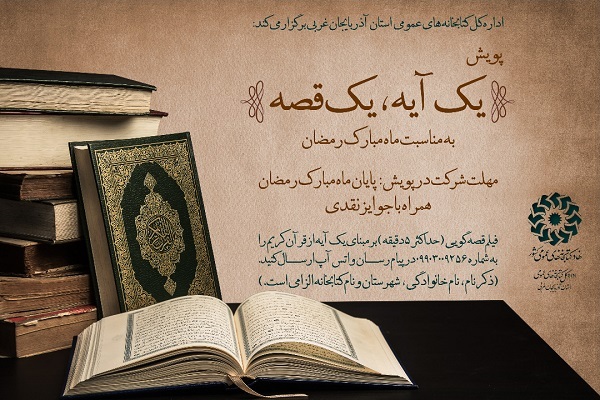 اداره کل کتابخانه‌های عمومی استان آذربایجان غربی برگزار می کند:
پویش
یک آیه، یک قصه
به مناسبت ماه مبارک رمضان
مهلت شرکت در پویش: پایان ماه مبارک رمضان
همراه با جوایز نقدی
فیلم قصه گویی (حداکثر ۵ دقیقه) بر مبنای یک آیه از قرآن کریم را
به شماره ۰۹۹۰۳۰۰۹۲۵۶ در پیام رسان واتس آپ ارسال کنید.
(ذکر نام، نام خانوادگی، شهرستان و نام کتابخانه الزامی است.)
نهاد کتابخانه‌های عمومی کشور
اداره کل کتابخانه‌های عمومی
استان آذربایجان غربی